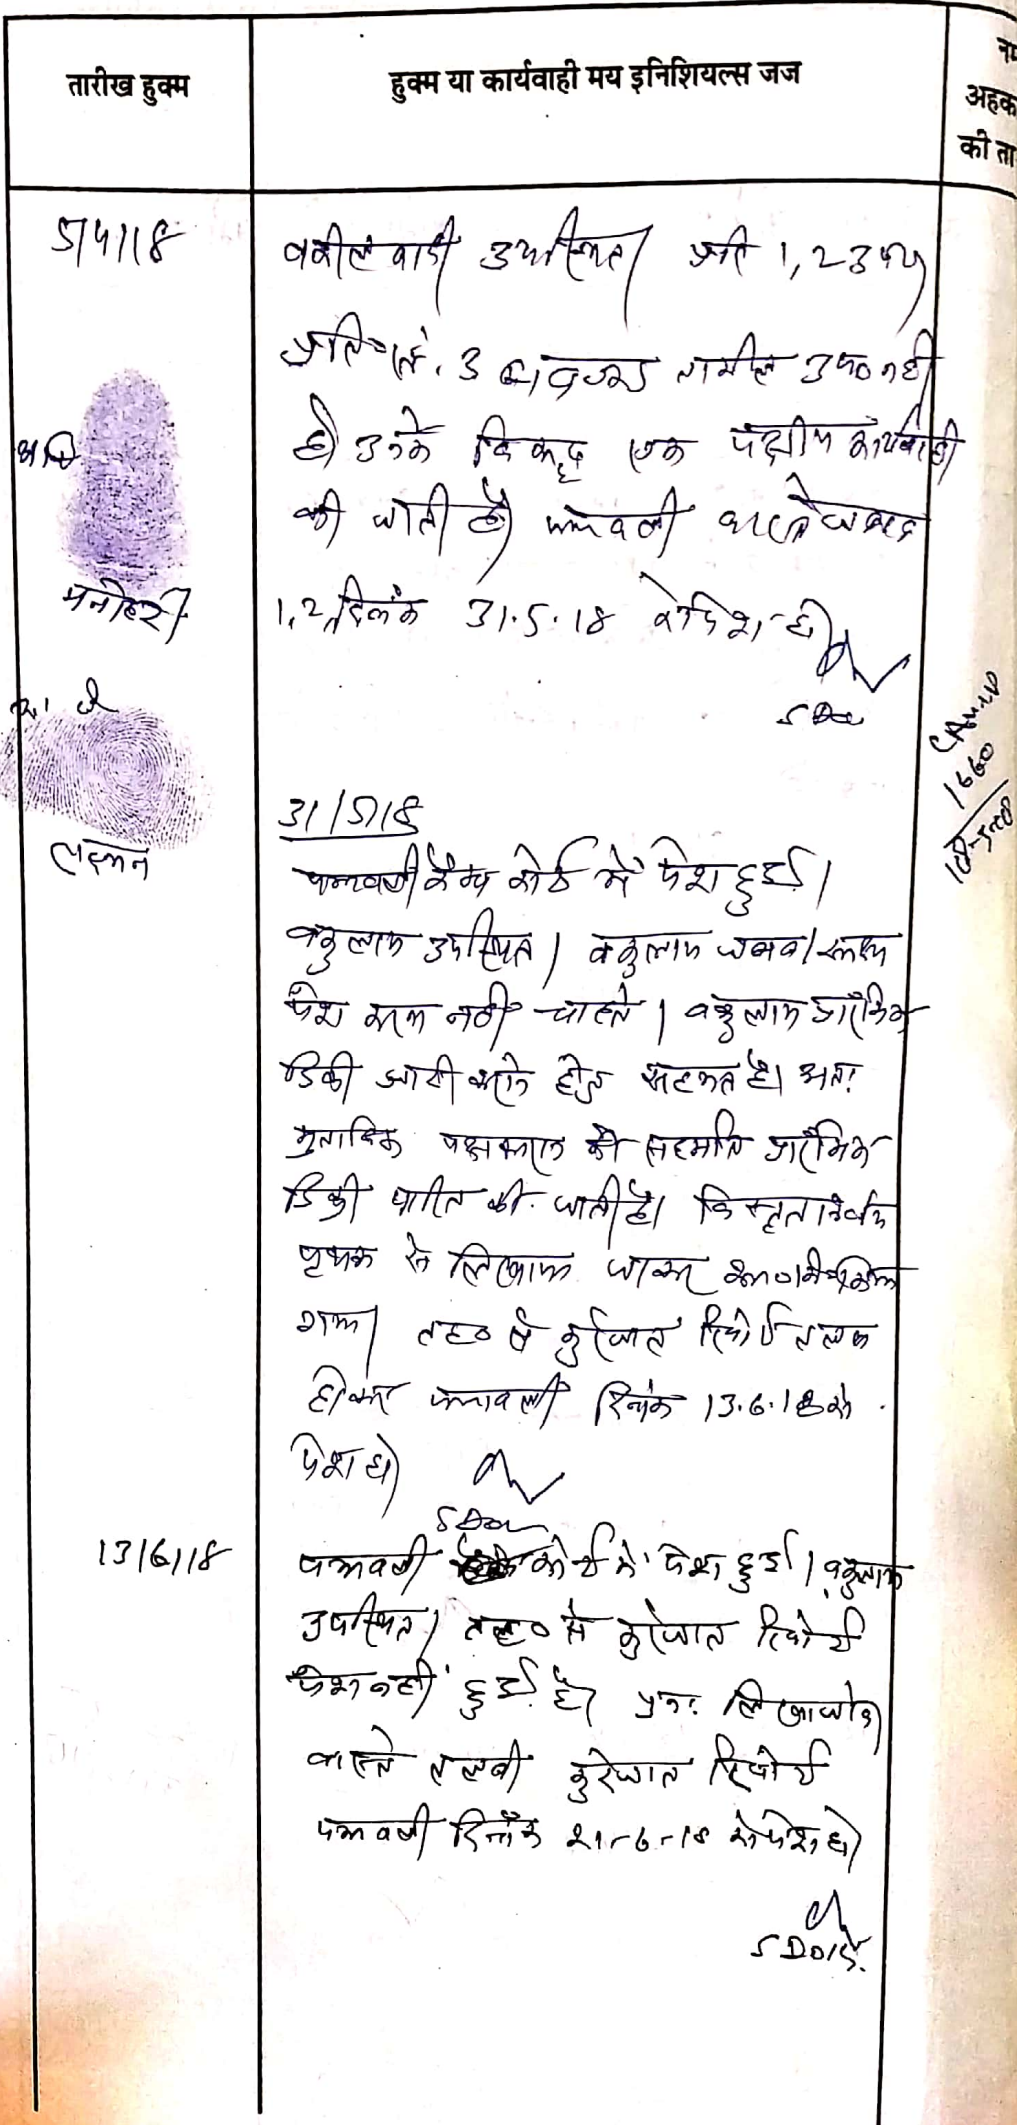 तारीख हुक्म
हुक्म या कार्यवाही मय इनिशियल्स जज
अहक
की ता
5/4/18
वकील वादी उपस्थित। प्रति 1, 2 उप०
प्रति सं. 3 बावजूद तामील उप० नही
है। उनके विरूद्ध एक पक्षीय कार्यवाही
की जाती है। पत्रावली वास्ते जवाब
1, 2 दिनांक 31.5.18 को पेश हो।
SDO
मनोहरी
लक्ष्मन
31/5/18
पत्रावली कैम्प कोर्ट में पेश हुई।
वकुलाय उपस्थित। वकुलाय जवाब
पेश करना नही चाहते। वकुलाय प्रारंभिक
डिक्री जारी करने हेतु सहमत है। अतः
मुताबिक पक्षकारान की सहमति प्रारंभिक
डिक्री पारित की जाती है। विस्तृत निर्णय
पृथक से लिखाया जाकर शा०मि० किया
गया। तह० से कुरेजात रिपोर्ट तलब
होकर पत्रावली दिनांक 13.6.18 को
पेश हो।
SDO
13/6/18
पत्रावली कोर्ट में पेश हुई। वकुलाय
उपस्थित। तह० से कुरेजात रिपोर्ट
पेश नहीं हुई है। पुनः लिखा जावे।
वास्ते तलबी कुरेजात रिपोर्ट
पत्रावली दिनाँक 21-6-18 को पेश हो।
SDO